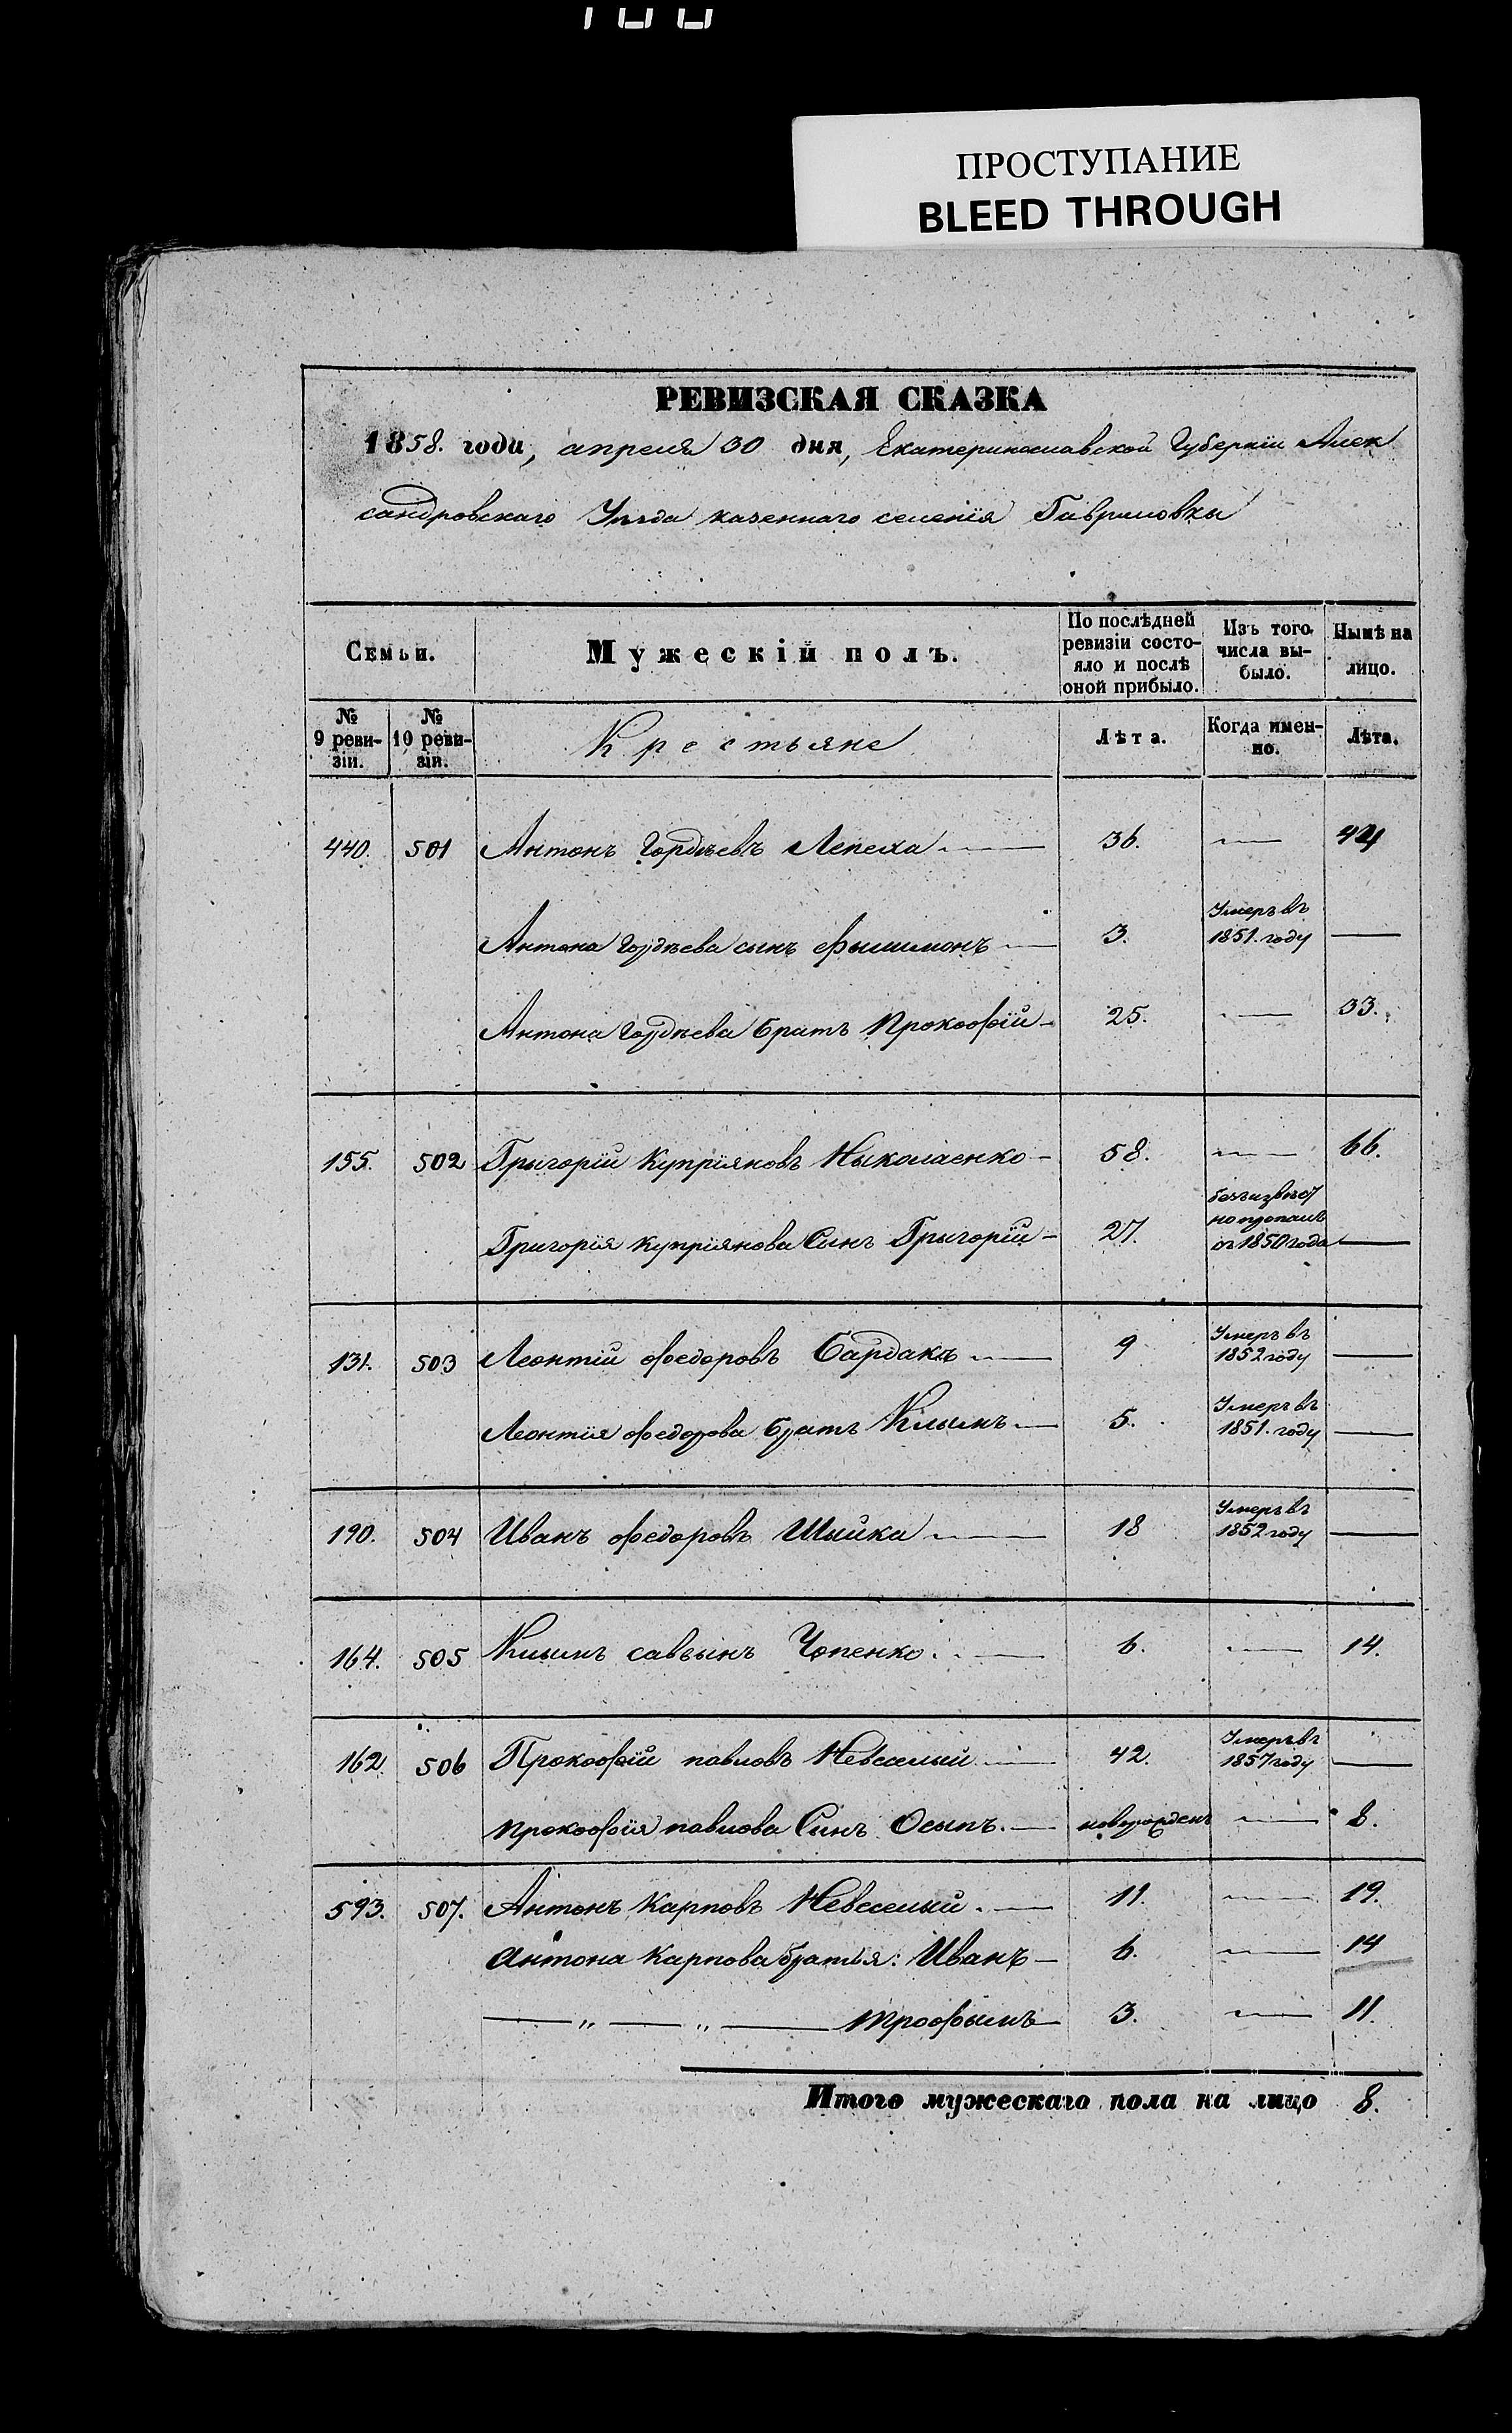 ПРОСТУПАНИЕ
BLEED THROUGH
РЕВИЗСКАЯ СКАЗКА
1858. года, апреля 30 дня, Екатеринославской Губерніи Алек
сандровскаго Уѣзда казеннаго селенія Гавриловки
Семьи. Мужескій полъ. По послѣдней ревизіи состояло и послѣ оной прибыло. Изъ того числа выбыло. Нынѣ на лицо.
№ 9 ревизіи. № 10 ревизіи. Крестьяне Лѣта. Когда именно. Лѣта.
440. 501 Антонъ Гордѣевъ Лепеха 36. — 44
Антона Гордѣева сынъ Фылимонъ — 3. Умеръ въ 1851. году —
Антона Гордѣева братъ Прокофій — 25. — 33.
155. 502 Григорій Купріяновъ Ныколаенко — 58. — 66.
Григорія Купріянова Сынъ Григорій — 27. безъизвѣстно пропалъ съ 1850 года —
131. 503 Леонтій Федоровъ Бардакъ — 9 Умеръ въ 1852 году —
Леонтія Федорова братъ Клымъ — 5. Умеръ въ 1851. году —
190. 504 Иванъ Федоровъ Шыйка — 18 Умеръ въ 1852 году —
164. 505 Клымъ савъынъ Чопенко. — 6. — 14.
162. 506 Прокофій павловъ Невеселый — 42. Умеръ въ 1857 году —
Прокофія павлова Сынъ Осыпъ. — новорожденъ — 8.
593. 507. Антонъ Карповъ Невеселый. — 11. — 19.
Антона Карпова братья: Иванъ — 6. — 14
— „ — „ — Трофымъ — 3. — 11.
Итого мужескаго пола на лицо 8.